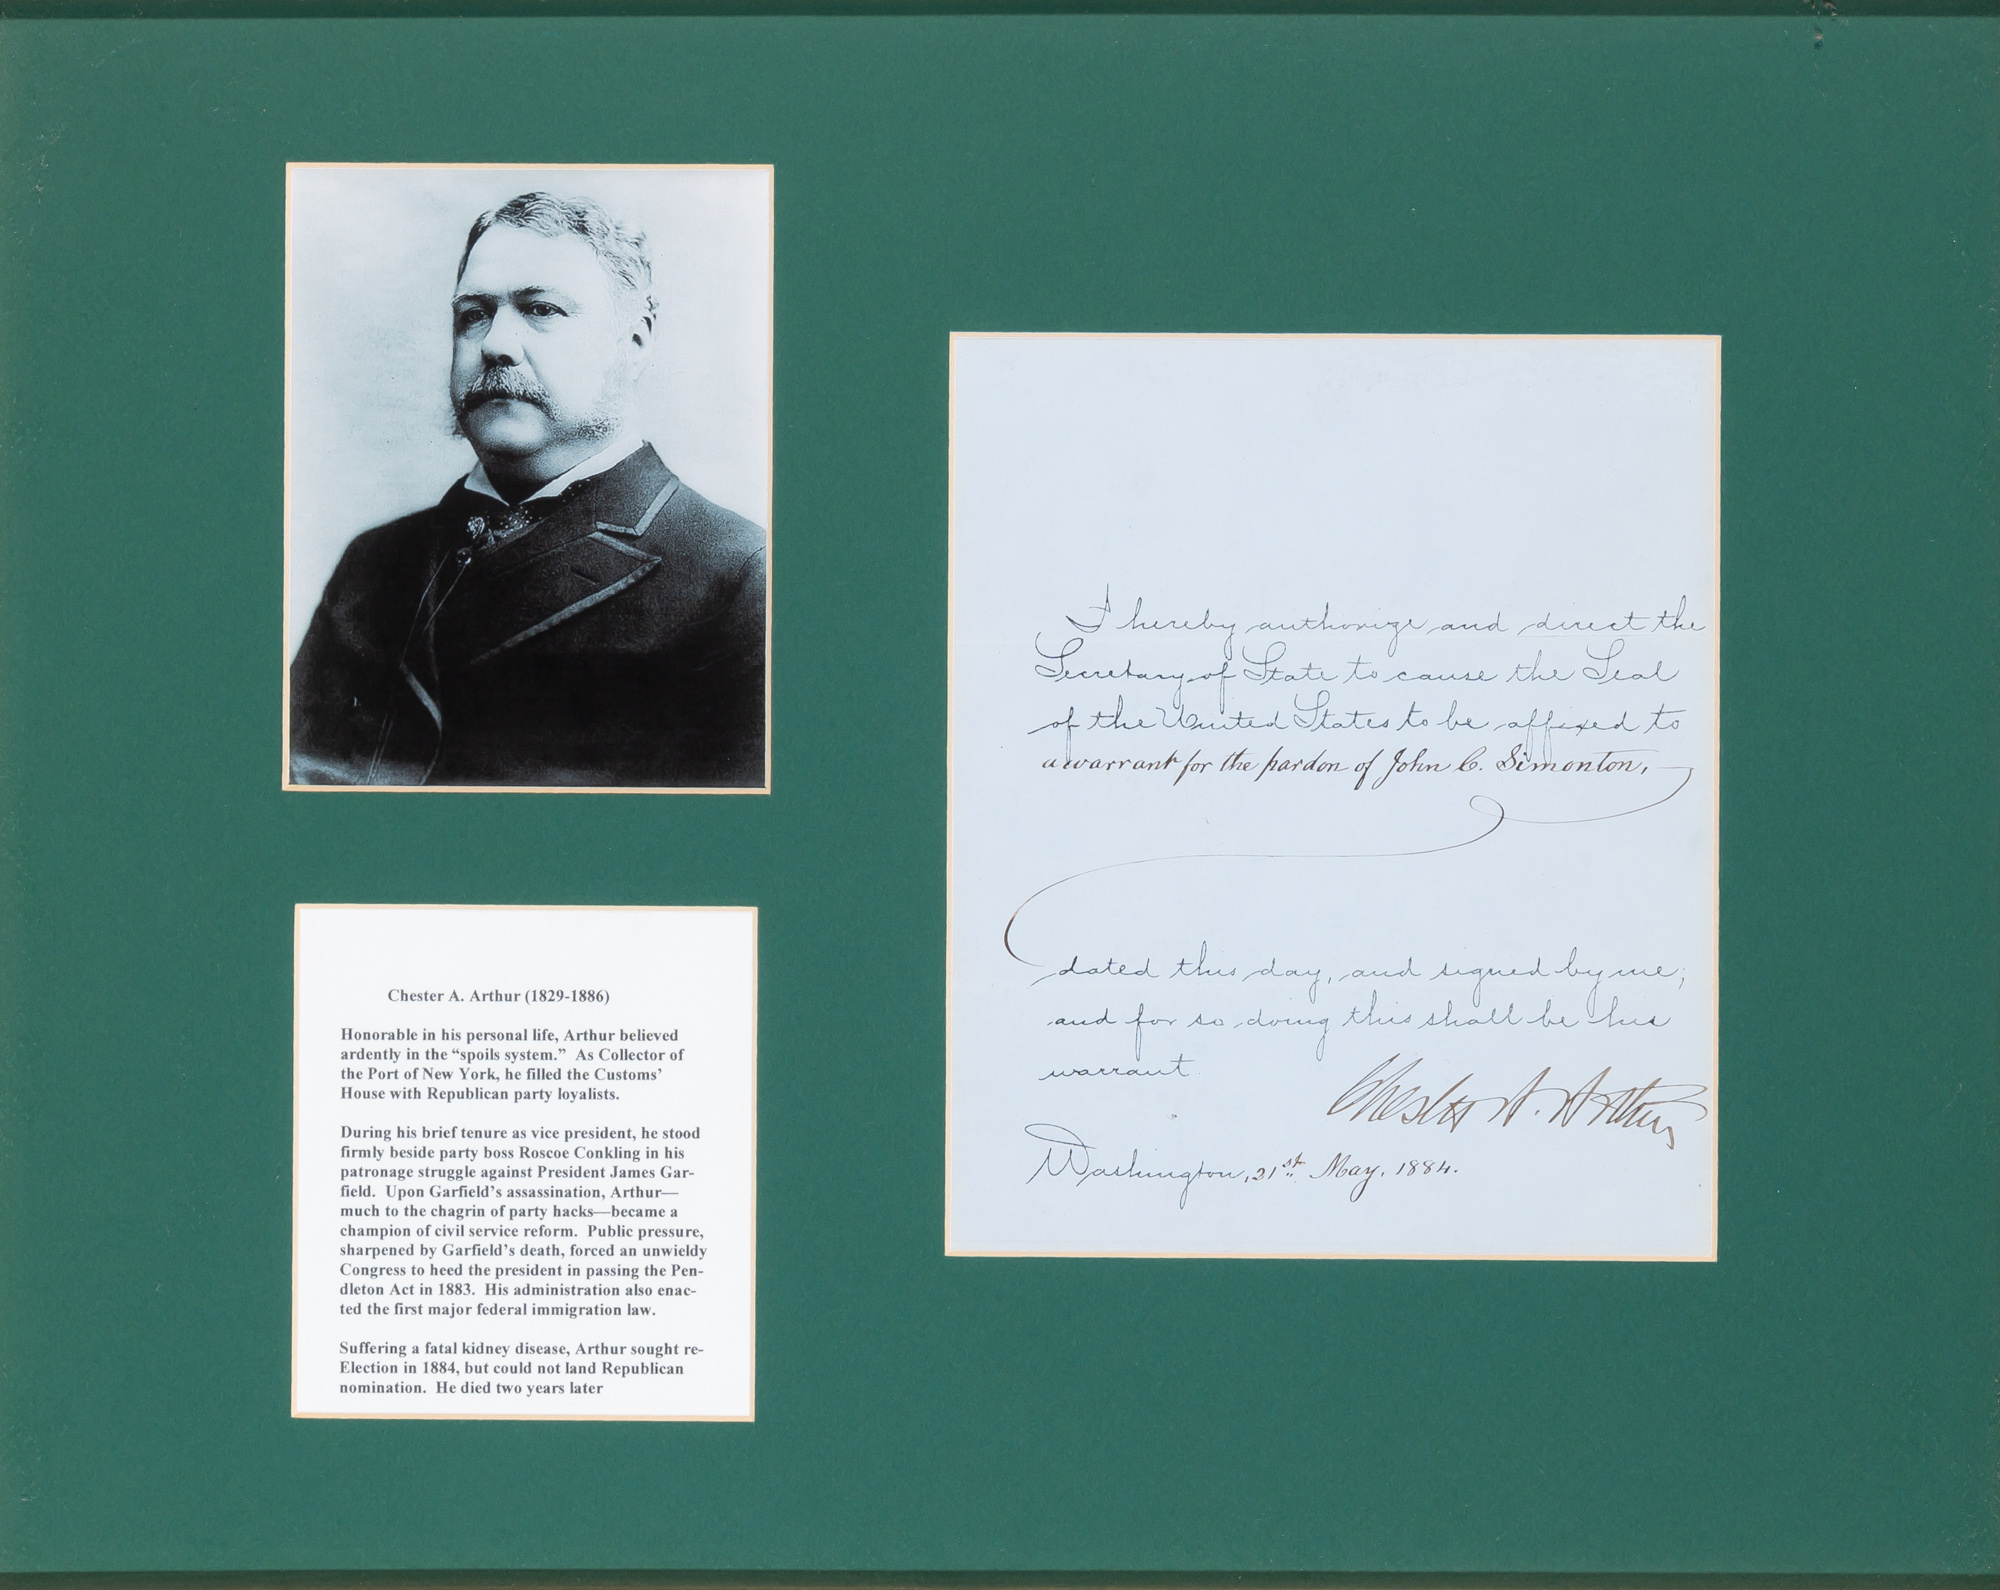 Chester A. Arthur (1829-1886)
Honorable in his personal life, Arthur believed
ardently in the “spoils system.” As Collector of
the Port of New York, he filled the Customs’
House with Republican party loyalists.
During his brief tenure as vice president, he stood
firmly beside party boss Roscoe Conkling in his
patronage struggle against President James Gar-
field. Upon Garfield’s assassination, Arthur—
much to the chagrin of party hacks—became a
champion of civil service reform. Public pressure,
sharpened by Garfield’s death, forced an unwieldy
Congress to heed the president in passing the Pen-
dleton Act in 1883. His administration also enac-
ted the first major federal immigration law.
Suffering a fatal kidney disease, Arthur sought re-
Election in 1884, but could not land Republican
nomination. He died two years later
I hereby authorize and direct the
Secretary of State to cause the Seal
of the United States to be affixed to
a warrant for the pardon of John C. Simonton,
dated this day, and signed by me;
and for so doing this shall be his
warrant.
Chester A. Arthur
Washington, 21st May, 1884.